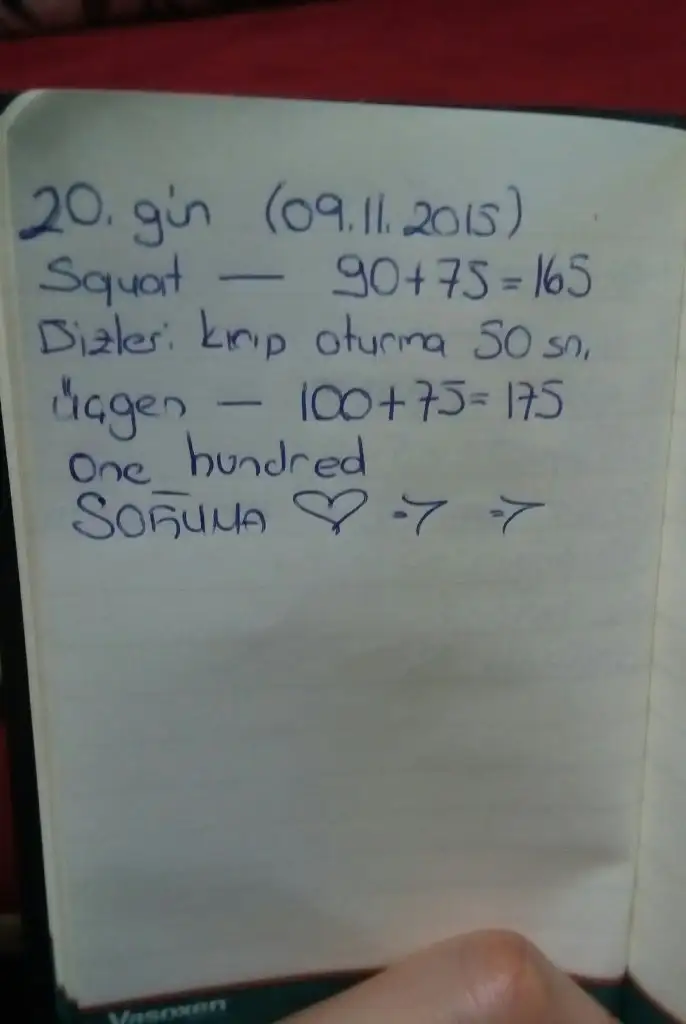 20. gün (09.11.2015)
Squat — 90+75=165
Dizleri kırıp oturma 50 sn.
üçgen — 100+75=175
One hundred
SOĞUMA ♡ :> :>
Vasoxen